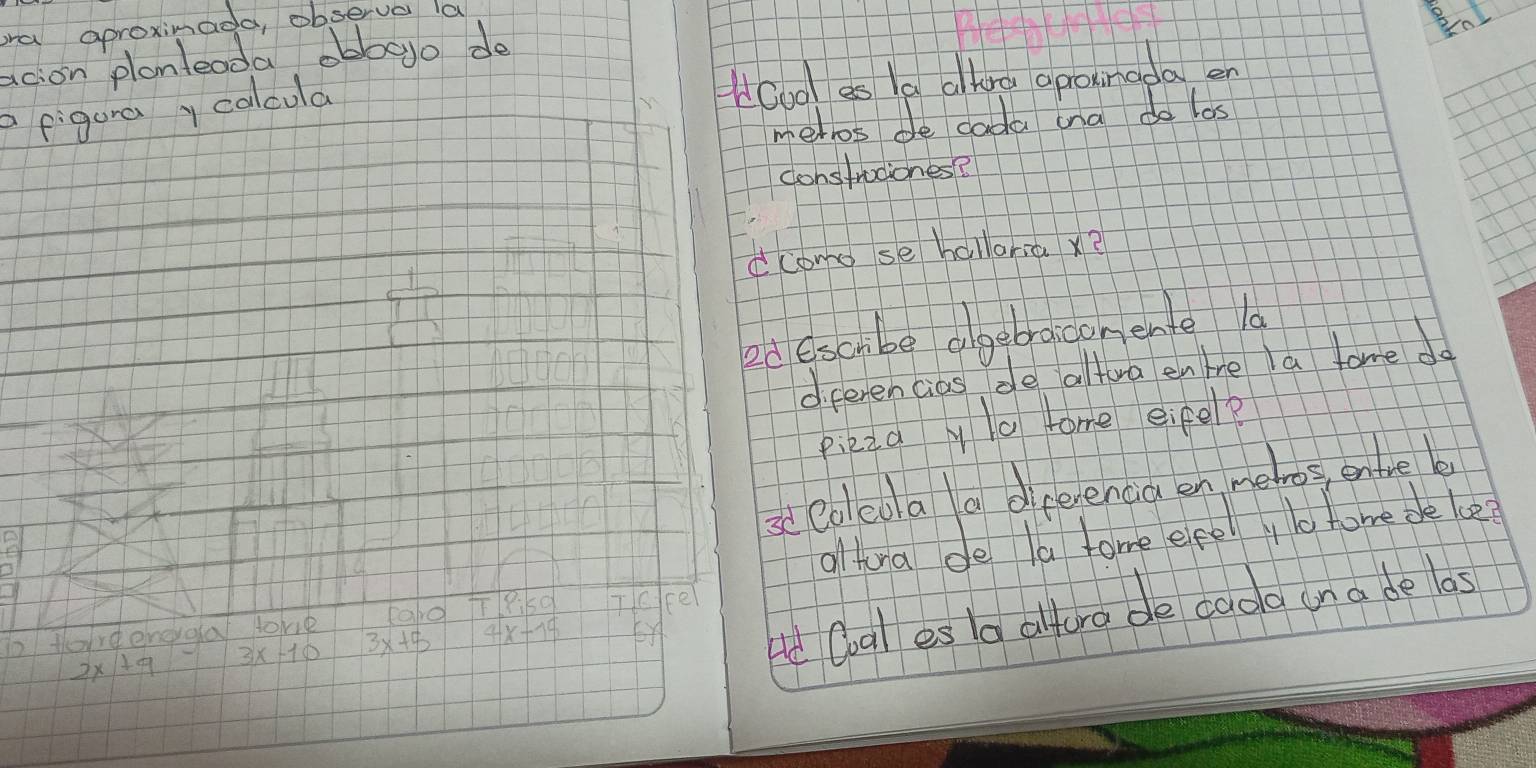 aproximada, observa la
acion planteada abbajo de
a figura y calcula
torre faro T Pisa T eifel
2x+9 3x-10 3x+5 6x
Preguntas
1d Cual es la altura aproximada en
metros de cada una de las
construciones?
d como se hallaria x?
2d Escribe algebraicamente la
diferencias de altura entre la torre de
pizza y la torre eifel?
3d Calcula la diferencia en metros, entre la
altura de la torre eifel y la torre de
4d Cual es la altura de cada una de las